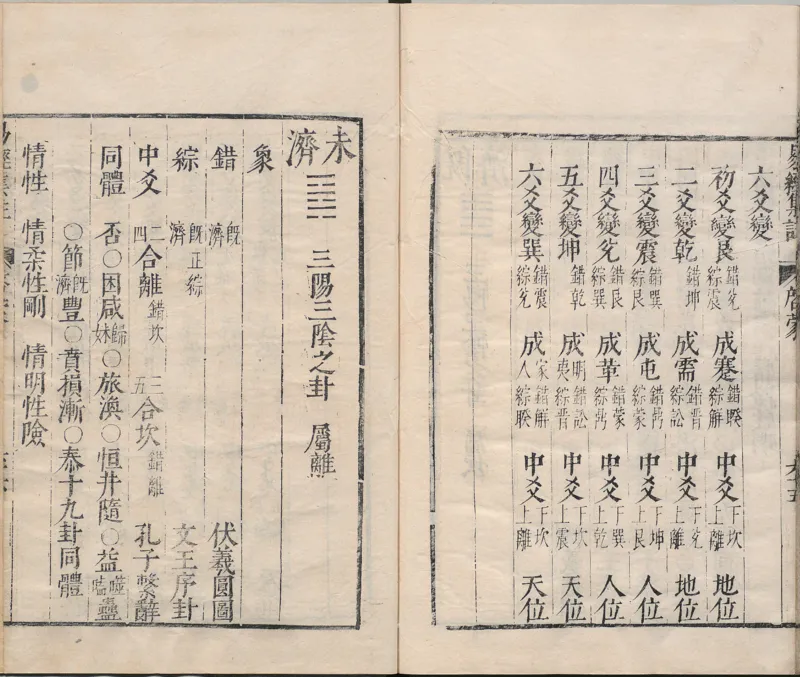 易經集註 啓蒙
六爻變
初爻變艮 錯兌綜震 成蹇 錯睽綜解 中爻 下坎上離 地位
二爻變乾 錯坤 成需 錯晉綜訟 中爻 下兌上離 地位
三爻變震 錯巽綜艮 成屯 錯鼎綜蒙 中爻 下坤上艮 人位
四爻變兌 錯艮綜巽 成革 錯蒙綜鼎 中爻 下巽上乾 人位
五爻變坤 錯乾 成明夷 錯訟綜晉 中爻 下坎上震 天位
六爻變巽 錯震綜兌 成家人 錯解綜睽 中爻 下坎上離 天位
未濟 三陽三陰之卦 屬離
象
錯 既濟 伏羲圓圖
綜 既濟 正綜 文王序卦
中爻 二四合離 錯坎 三五合坎 錯離 孔子繫辭
同體 否○困咸歸妹○旅渙○恒井隨○益噬嗑蠱
○節既濟豐○賁損漸○泰十九卦同體
情性 情柔性剛 情明性險